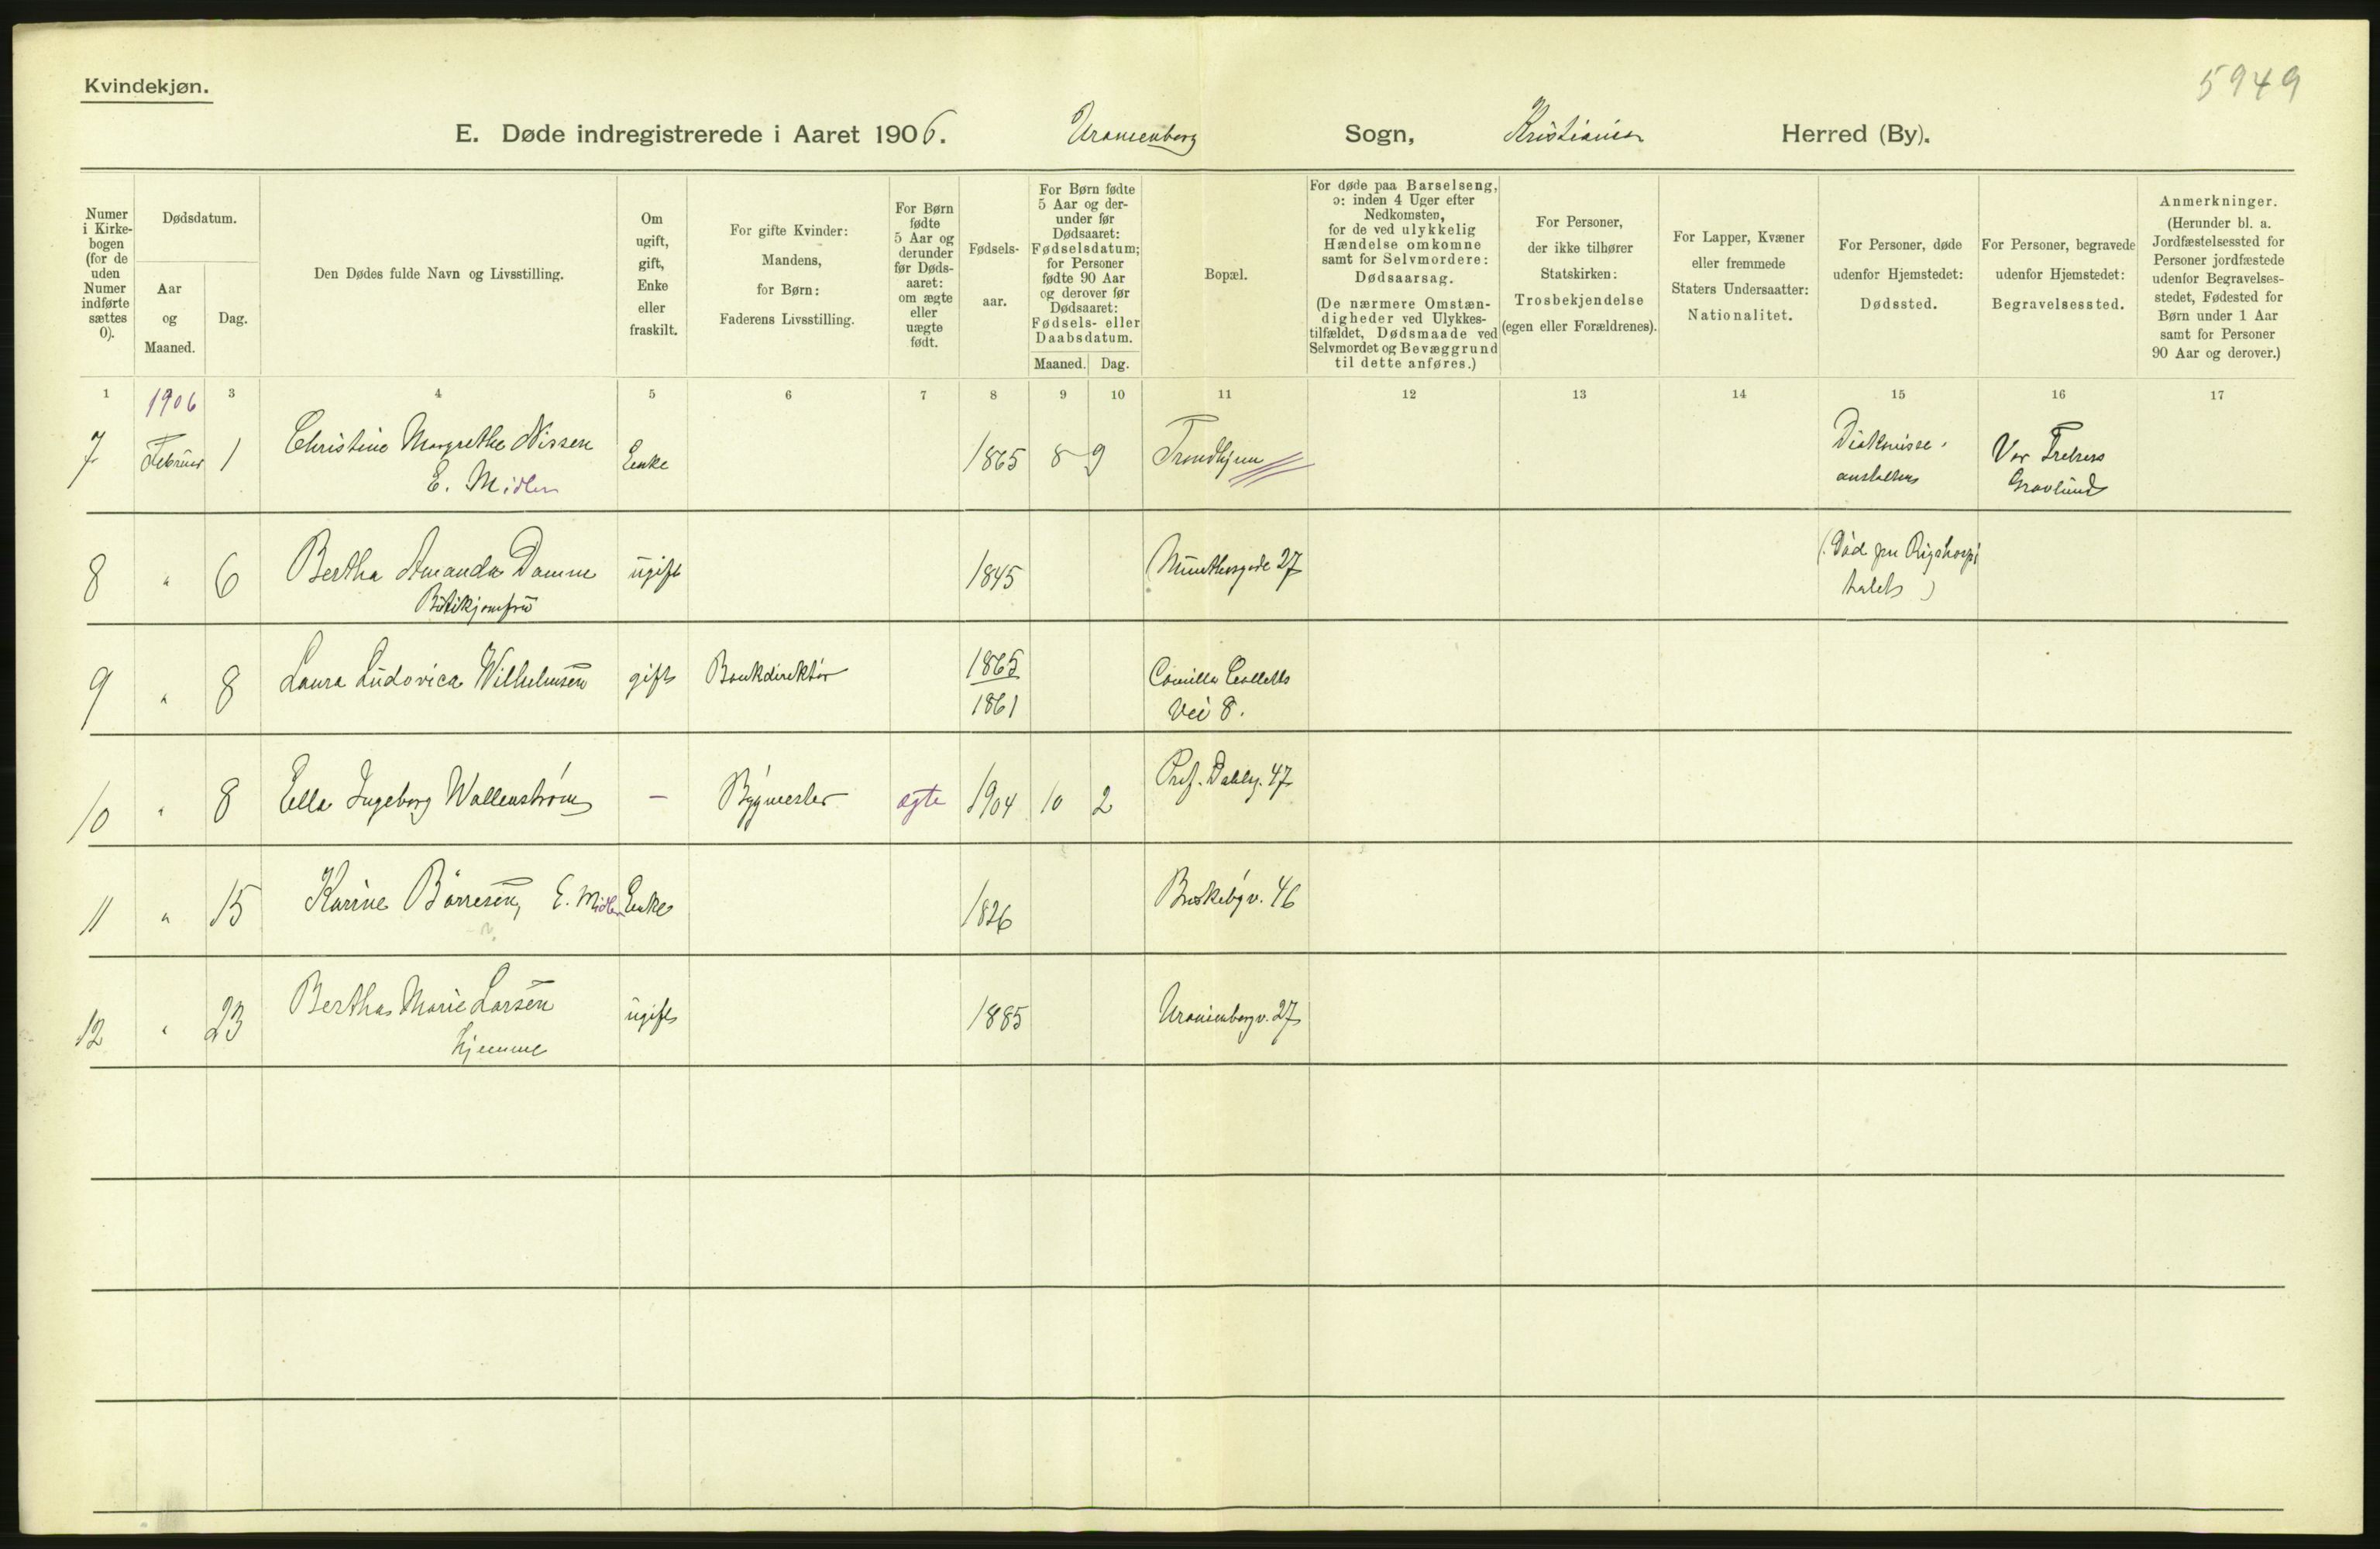 Kvindekjøn.
5949
E. Døde indregistrerede i Aaret 1906. Uranienborg Sogn, Kristiania Herred (By).
Numer
i Kirke-
bogen
(for de
uden
Numer
indførte
sættes
0).
Dødsdatum.
Aar
og
Maaned.
Dag.
Den Dødes fulde Navn og Livsstilling.
Om
ugift,
gift,
Enke
eller
fraskilt.
For gifte Kvinder:
Mandens,
for Børn:
Faderens Livsstilling.
For Børn
fødte
5 Aar og
derunder
før Døds-
aaret:
om ægte
eller
uægte
født.
Fødsels-
aar.
For Børn fødte
5 Aar og der-
under før
Dødsaaret:
Fødselsdatum;
for Personer
fødte 90 Aar
og derover før
Dødsaaret:
Fødsels- eller
Daabsdatum.
Maaned. Dag.
Bopæl.
For døde paa Barselseng,
ɔ: inden 4 Uger efter
Nedkomsten,
for de ved ulykkelig
Hændelse omkomne
samt for Selvmordere:
Dødsaarsag.
(De nærmere Omstæn-
digheder ved Ulykkes-
tilfældet, Dødsmaade ved
Selvmordet og Bevæggrund
til dette anføres.)
For Personer,
der ikke tilhører
Statskirken:
Trosbekjendelse
(egen eller Forældrenes).
For Lapper, Kvæner
eller fremmede
Staters Undersaatter:
Nationalitet.
For Personer, døde
udenfor Hjemstedet:
Dødssted.
For Personer, begravede
udenfor Hjemstedet:
Begravelsessted.
Anmerkninger.
(Herunder bl. a.
Jordfæstelsessted for
Personer jordfæstede
udenfor Begravelses-
stedet, Fødested for
Børn under 1 Aar
samt for Personer
90 Aar og derover.)
1 3 4 5 6 7 8 9 10 11 12 13 14 15 16 17
1906
7 Februar 1 Christine Margrethe Nissen Enke 1865 8 9 Trondhjem Diakonisse- Vor Frelsers
E. Midler anstalten Gravlund
8 " 6 Bertha Amanda Damm ugift 1845 Munthesgade 27 (Död paa Rigshospi
Butikjomfru talet)
9 " 8 Laura Ludovica Wilhelmsen gift Bankdirektör 1865 Camilla Colletts
1861 Vei 8.
10 " 8 Ella Ingeborg Wallenström - Bygmester ægte 1904 10 2 Prof. Dahlsg. 47
11 " 15 Karine Börresen, E. Midler Enke 1826 Briskebyv. 46
12 " 23 Bertha Marie Larsen ugift 1885 Uranienborgv. 27
hjemme